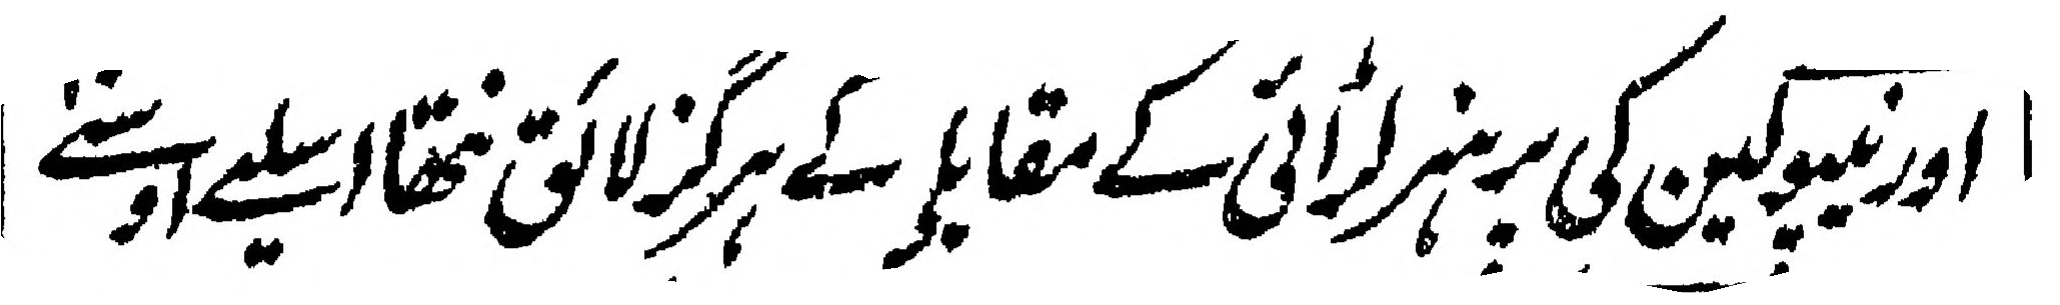 اور نیپولین کی پر ہنر لڑائی کے مقابلہ کے ہرگز لائق نتھا اسلیے اوسنے